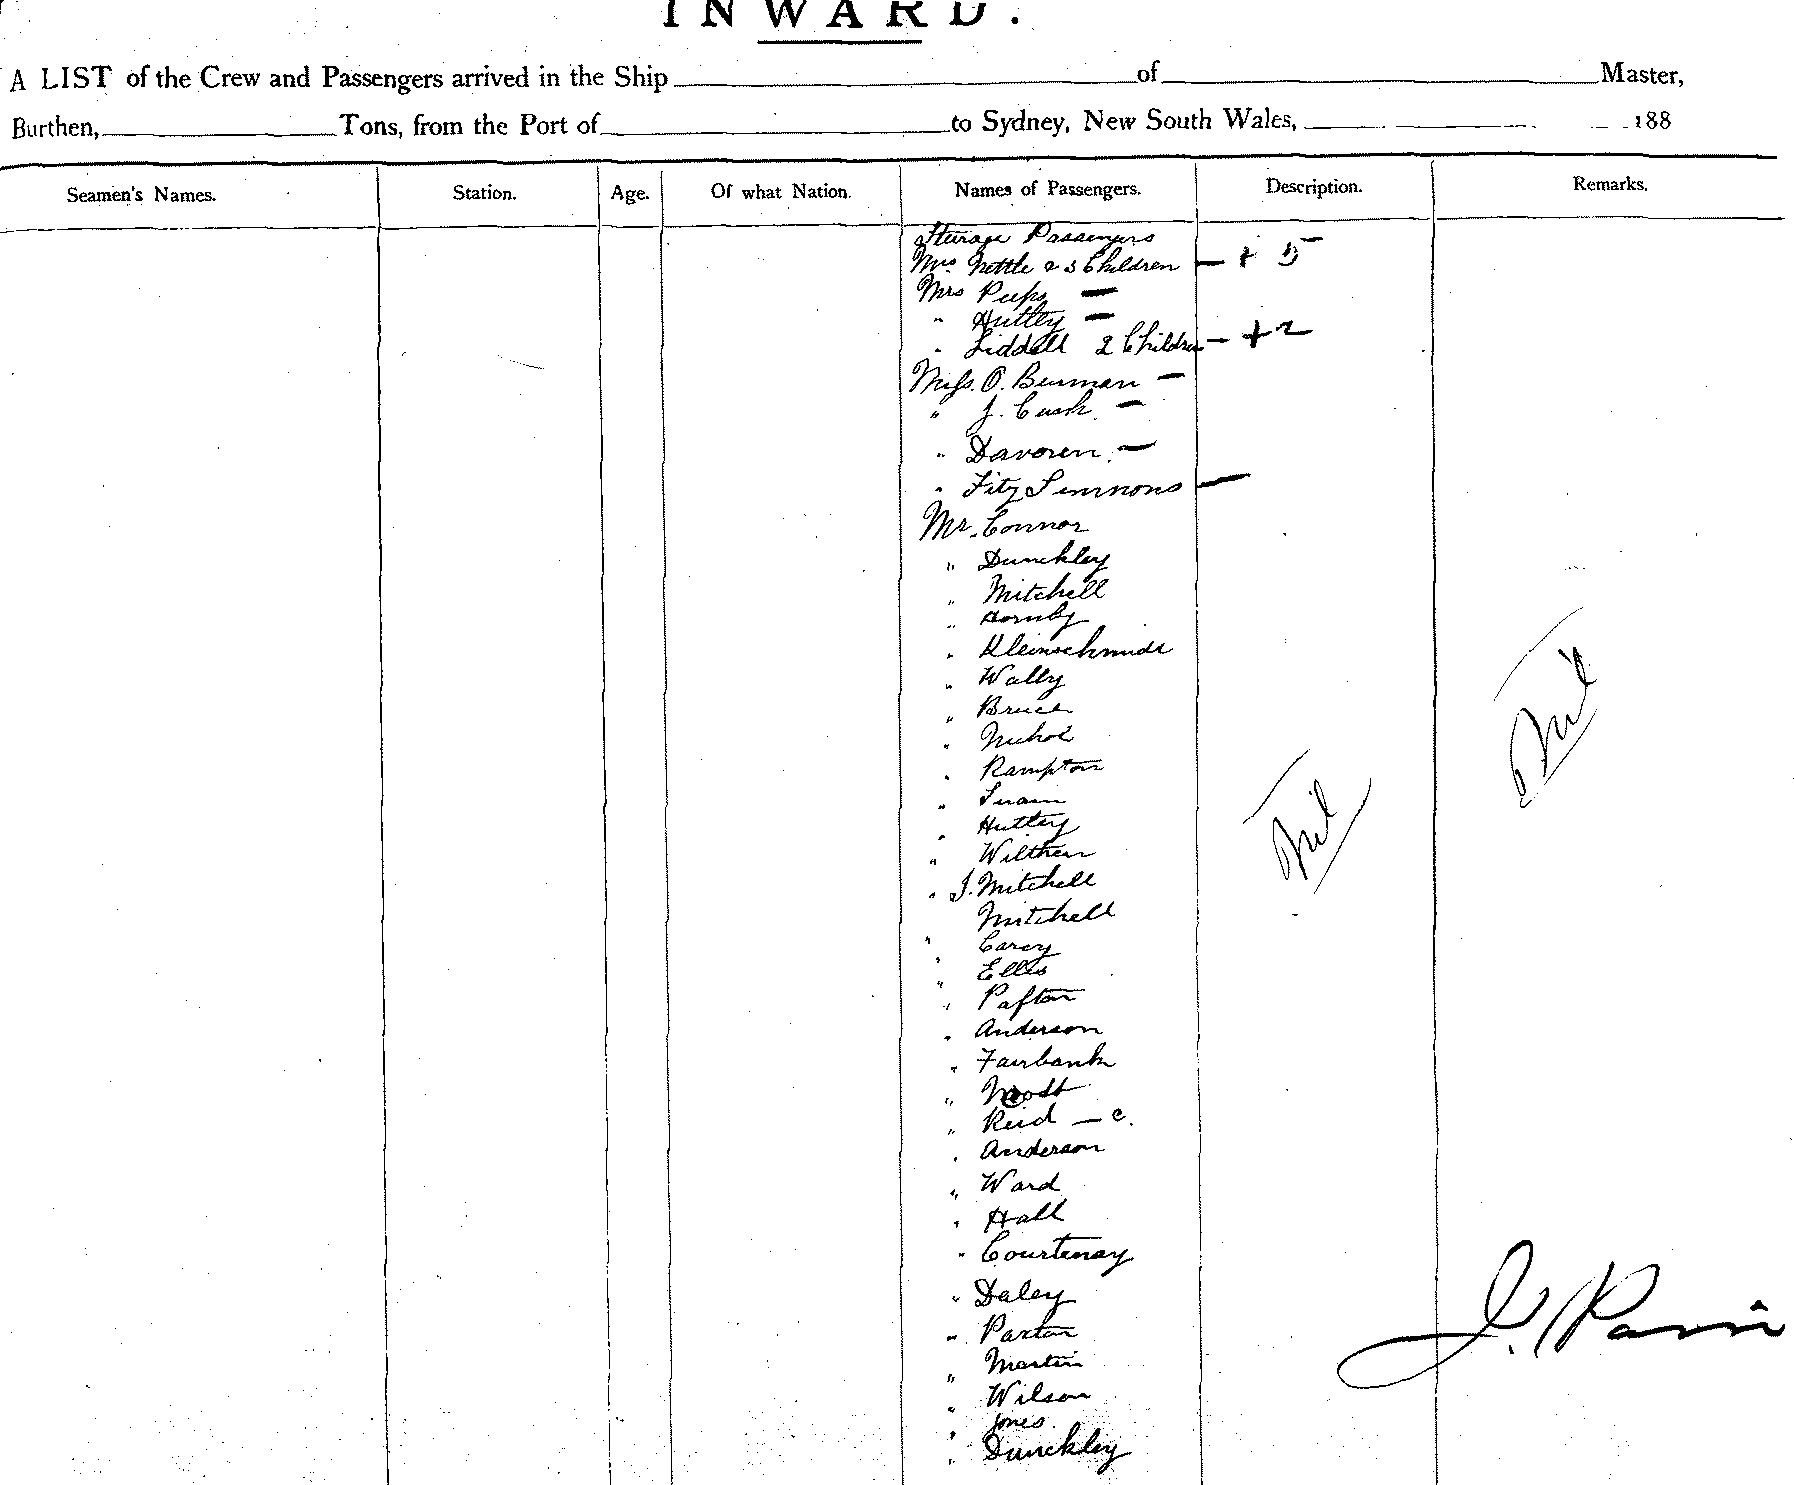 INWARD.
A LIST of the Crew and Passengers arrived in the Ship of Master,
Burthen, Tons, from the Port of to Sydney, New South Wales, 188
Seamen's Names. Station. Age. Of what Nation. Names of Passengers. Description. Remarks.
Steerage Passengers
Mrs. Nettle & 5 Children — + 5
Mrs Peeps —
" Huttey —
" Liddell 2 Children — + 2
Miss. O. Burman —
" J. Cusk. —
" Davoren. —
" Fitz Simmons —
Mr. Connor
" Dunckley
" Mitchell
" Hornby
" Kleinschmidt
" Wally
" Bruce
" Nichol
" Rampton
"
" Huttey
" Wilthen
" J. Mitchell
Mitchell
" Carey
" Ellis
" Pafton
" Anderson
" Fairbank
"
" Reid — c.
" Anderson
" Ward
" Hall
" Courtenay
" Daley
" Paxton
" Martin
" Wilson
" Jones.
" Dunckley
Nil
Nil